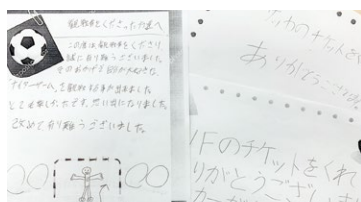 観戦券をくださった方達へ
この度は、観戦券をくださり
誠に有り難うございました。
そのおかげで
ナイターゲームを観戦する事が出来ました
とても楽しかったです。思い出になりました。
改めて有り難うございました。
のチケットを
ありがとうござい
Fのチケットをくれ
りがとうございま